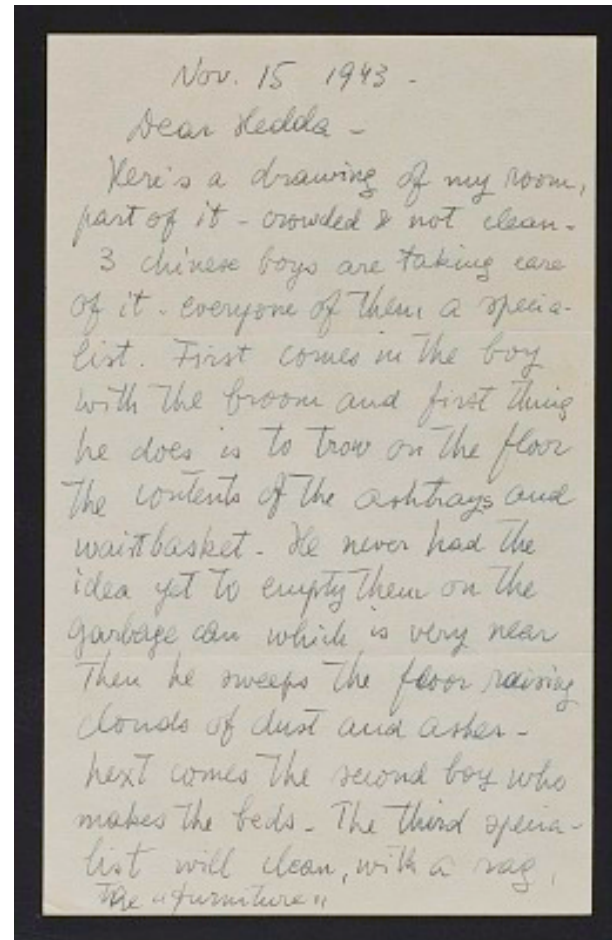 Nov. 15 1943 -
Dear Hedda -
Here's a drawing of my room,
part of it - crowded & not clean.
3 chinese boys are taking care
of it - everyone of them a specia-
list. First comes in the boy
with the broom and first thing
he does is to trow on the floor
the contents of the ashtrays and
waistbasket. He never had the
idea yet to empty them on the
garbage can which is very near
Then he sweeps the floor raising
clouds of dust and ashes -
next comes the second boy who
makes the beds. The third specia-
list will clean, with a rag,
the "furniture"